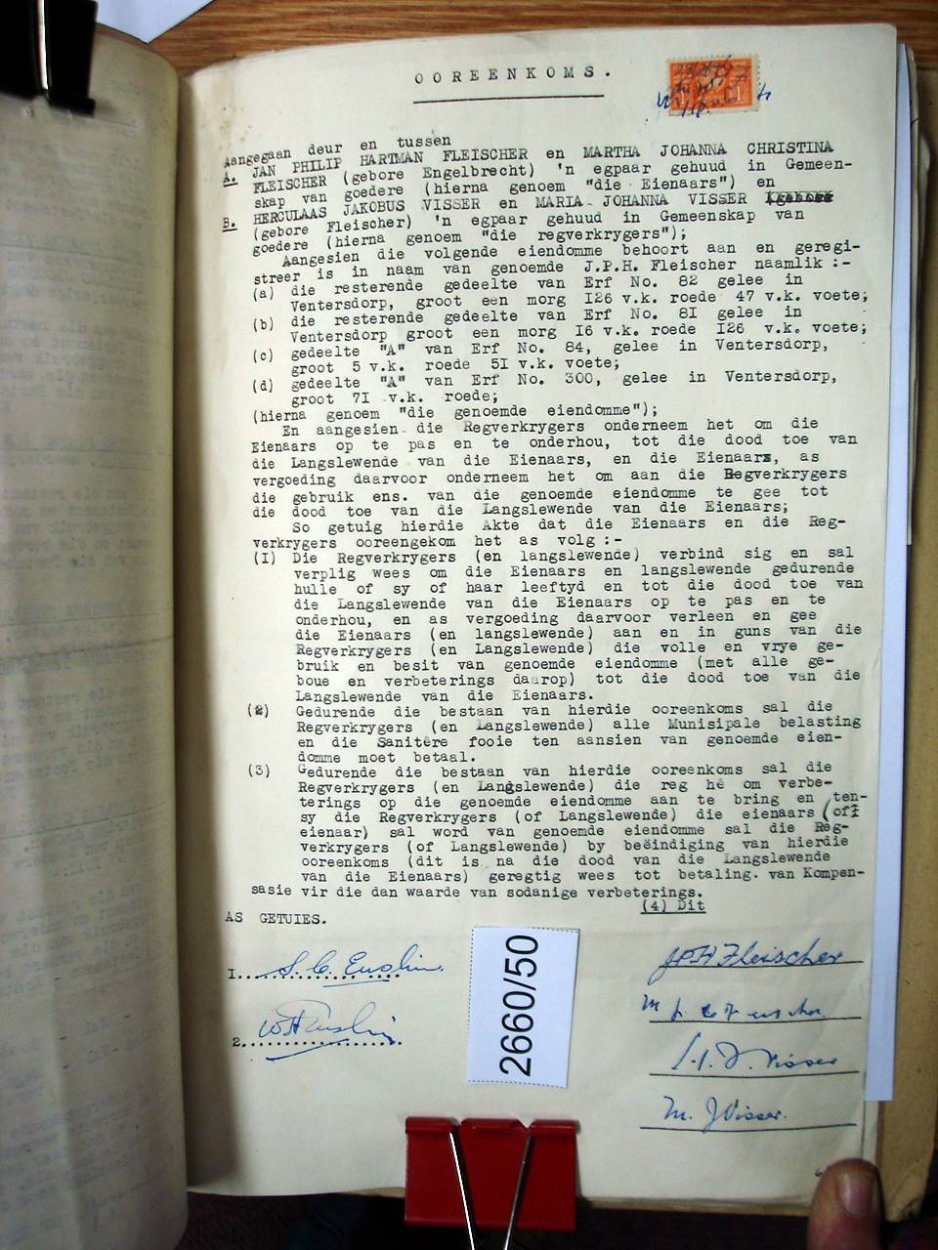 OOREENKOMS.
Aangegaan deur en tussen
A. JAN PHILIP HARTMAN FLEISCHER en MARTHA JOHANNA CHRISTINA
FLEISCHER (gebore Engelbrecht) 'n egpaar gehuud in Gemeen-
skap van goedere (hierna genoem "die Eienaars") en
B. HERCULAAS JAKOBUS VISSER en MARIA JOHANNA VISSER (gebore
(gebore Fleischer) 'n egpaar gehuud in Gemeenskap van
goedere (hierna genoem "die regverkrygers");
Aangesien die volgende eiendomme behoort aan en geregi-
streer is in naam van genoemde J.P.H. Fleischer naamlik :-
(a) die resterende gedeelte van Erf No. 82 gelee in
Ventersdorp, groot een morg I26 v.k. roede 47 v.k. voete;
(b) die resterende gedeelte van Erf No. 8I gelee in
Ventersdorp groot een morg I6 v.k. roede I26 v.k. voete;
(c) gedeelte "A" van Erf No. 84, gelee in Ventersdorp,
groot 5 v.k. roede 5I v.k. voete;
(d) gedeelte "A" van Erf No. 300, gelee in Ventersdorp,
groot 7I v.k. roede;
(hierna genoem "die genoemde eiendomme");
En aangesien die Regverkrygers onderneem het om die
Eienaars op te pas en te onderhou, tot die dood toe van
die Langslewende van die Eienaars, en die Eienaars, as
vergoeding daarvoor onderneem het om aan die Regverkrygers
die gebruik ens. van die genoemde eiendomme te gee tot
die dood toe van die Langslewende van die Eienaars;
So getuig hierdie Akte dat die Eienaars en die Reg-
verkrygers ooreengekom het as volg :-
(I) Die Regverkrygers (en langslewende) verbind sig en sal
verplig wees om die Eienaars en langslewende gedurende
hulle of sy of haar leeftyd en tot die dood toe van
die Langslewende van die Eienaars op te pas en te
onderhou, en as vergoeding daarvoor verleen en gee
die Eienaars (en langslewende) aan en in guns van die
Regverkrygers (en Langslewende) die volle en vrye ge-
bruik en besit van genoemde eiendomme (met alle ge-
boue en verbeterings daarop) tot die dood toe van die
Langslewende van die Eienaars.
(2) Gedurende die bestaan van hierdie ooreenkoms sal die
Regverkrygers (en Langslewende) alle Munisipale belasting
en die Sanitêre fooie ten aansien van genoemde eien-
domme moet betaal.
(3) Gedurende die bestaan van hierdie ooreenkoms sal die
Regverkrygers (en Langslewende) die reg hê om verbe-
terings op die genoemde eiendomme aan te bring en ten-
sy die Regverkrygers (of Langslewende) die eienaars (of
eienaar) sal word van genoemde eiendomme sal die Reg-
verkrygers (of Langslewende) by beëindiging van hierdie
ooreenkoms (dit is na die dood van die Langslewende
van die Eienaars) geregtig wees tot betaling. van Kompen-
sasie vir die dan waarde van sodanige verbeterings.
(4) Dit
AS GETUIES.
JPH Fleischer
1. S. C. Enslin.
2. WH Enslin
Visser
M. J Visser.
2660/50